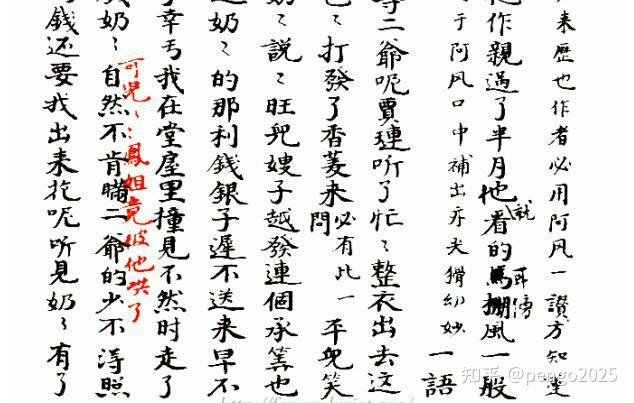 来歷也作者必用阿风一讚方知是
他作親過了半月他看的馬棚風一般
就
耳傍
于阿风口中補出亦尖猾幼妙 一語
等二爺呢賈璉听了忙〻整衣出去这
巴〻打發了香菱来問 必有此一 平兒笑
奶〻說〻旺兒嫂子越發連個承筭也
送奶〻的那利錢銀子遲不送来早不
幸亏我在堂屋里撞見不然时走了
可兒〻〻鳳姐竟彼他哄了
奶〻自然不肯瞞二爺的少不得照
錢还要我出来呢听見奶〻有了
知乎 @pengo2025